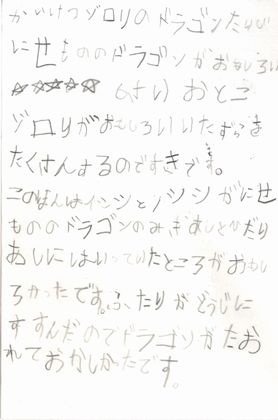 かいけつゾロリのドラゴンたいじ
にせもののドラゴンがおもしろい
☆☆☆☆☆ 6さい おとこ
ゾロリがおもしろいいたずらを
たくさんするのですきです。
このほんはイシシとノシシがにせ
もののドラゴンのみぎあしとひだり
あしにはいっていたところがおもし
ろかったです。ふたりがどうじに
すすんだのでドラゴンがたお
れておかしかったです。